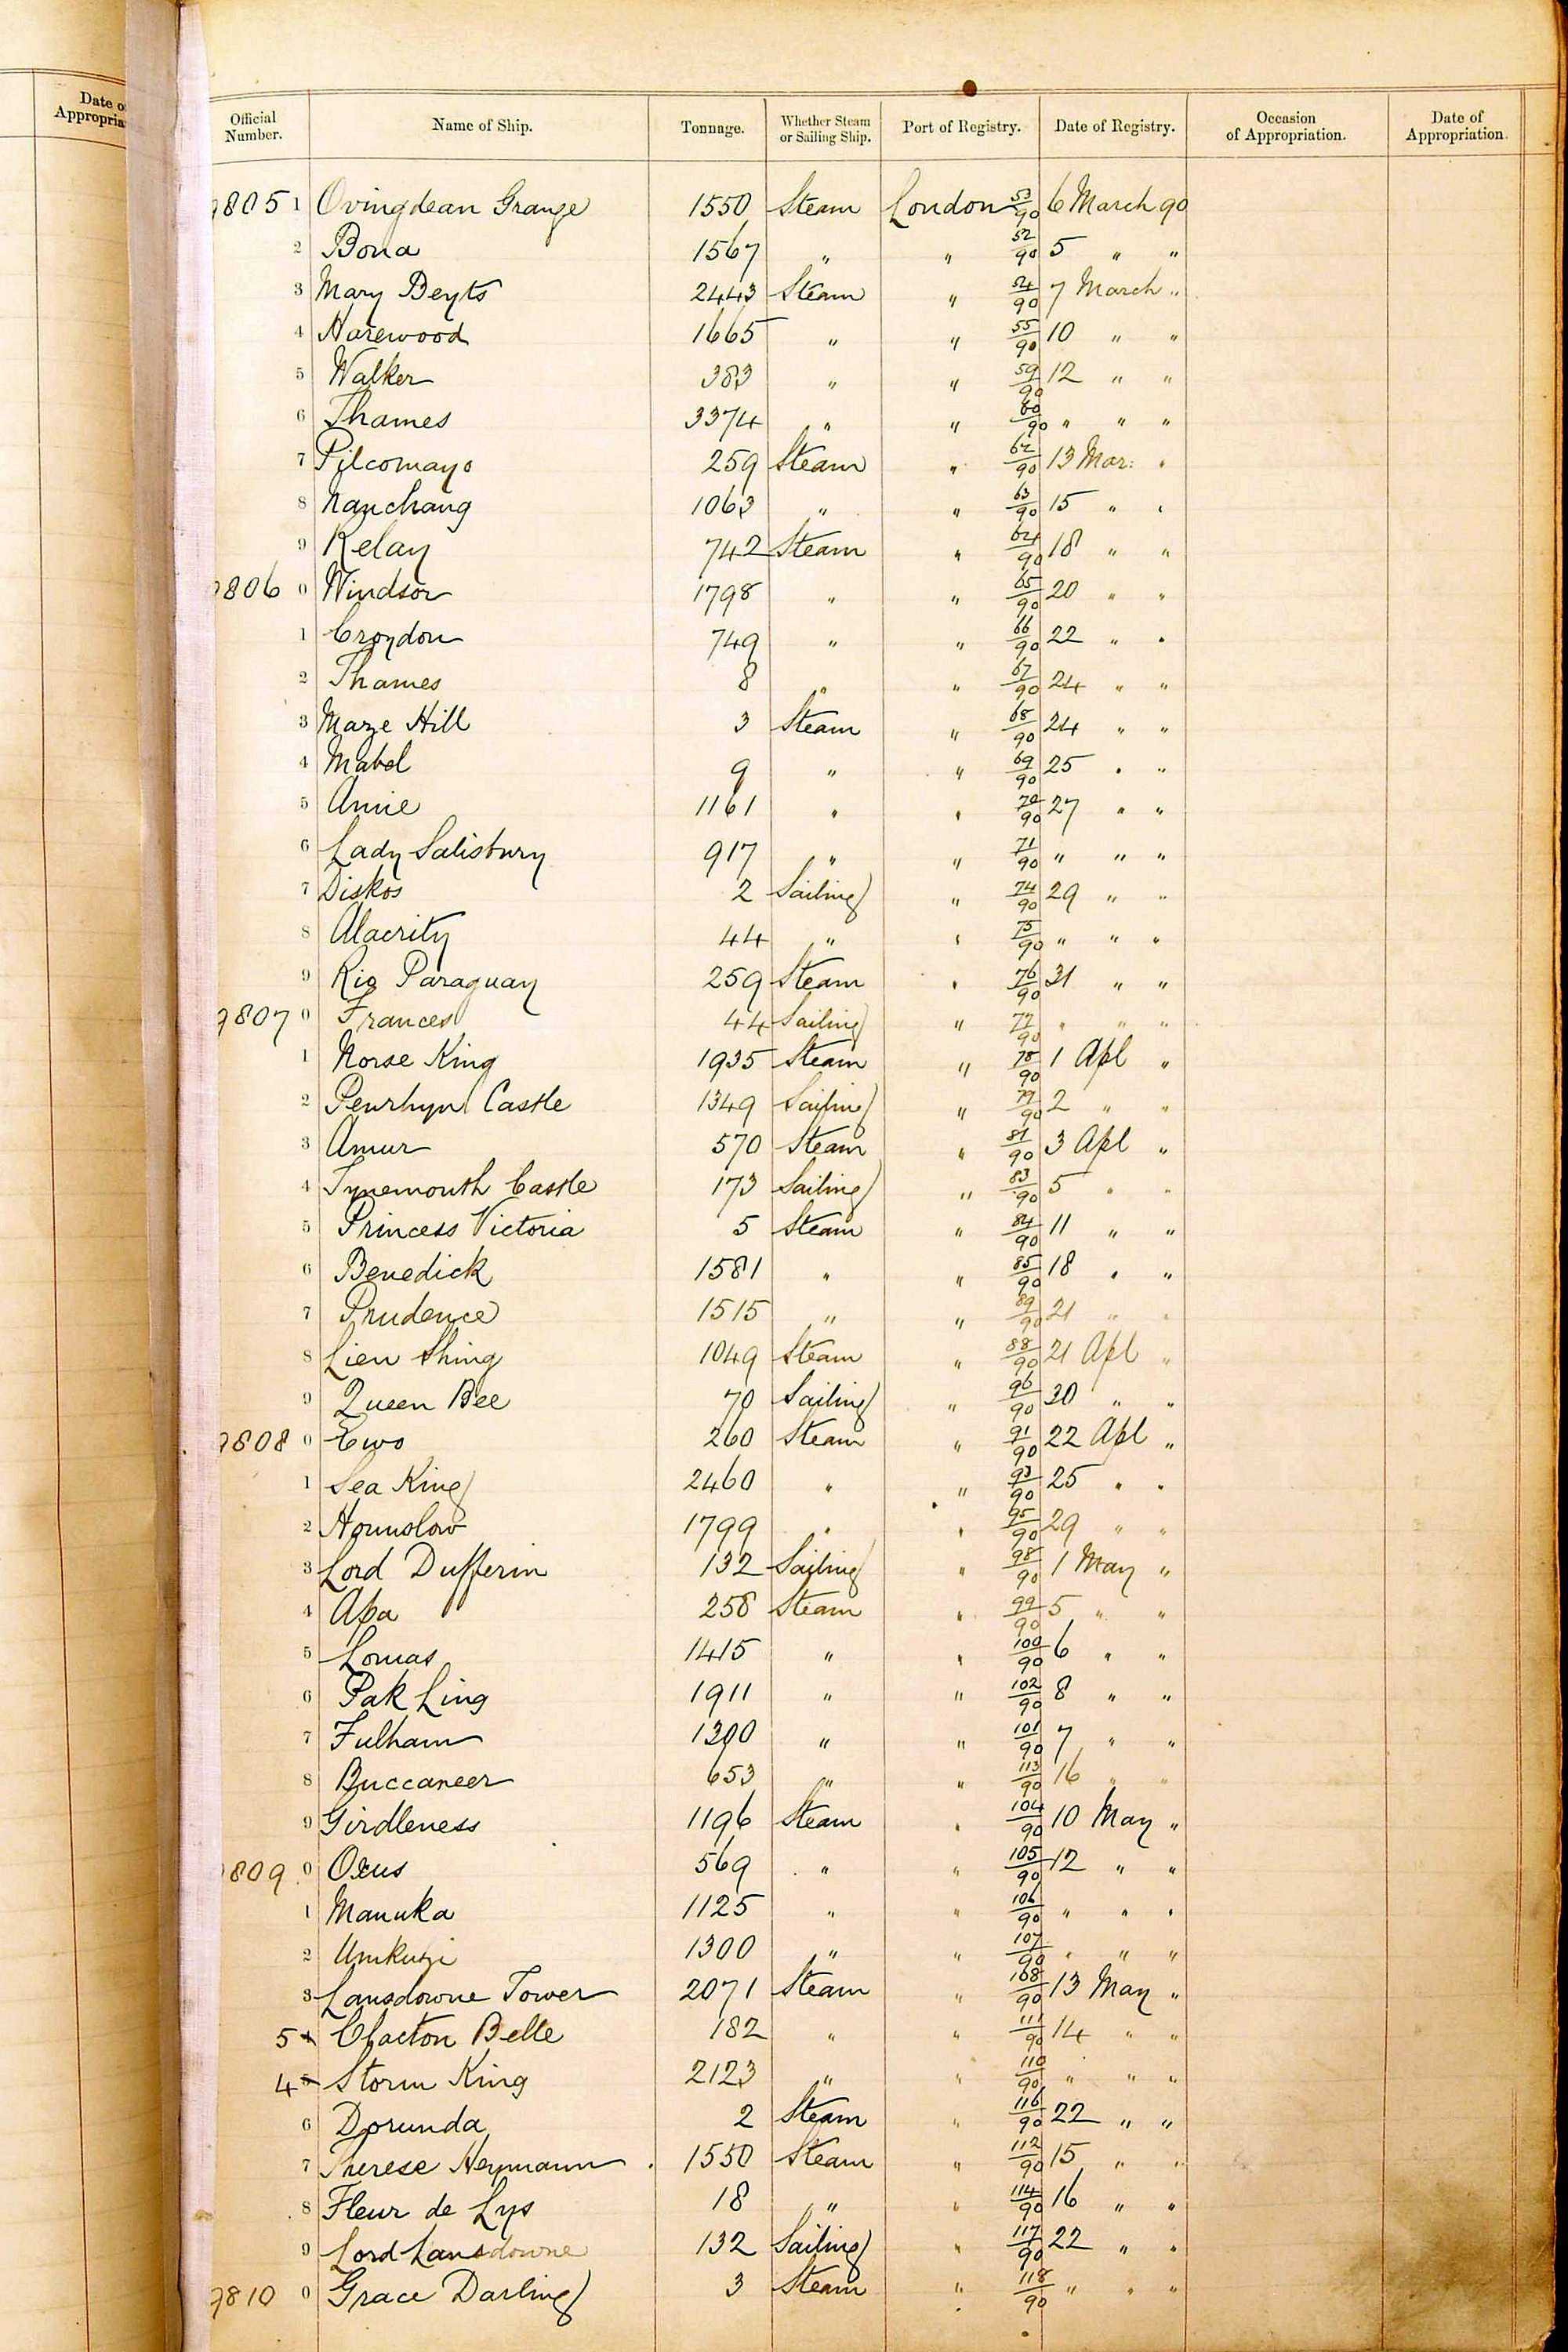 Date o
Appropria
Official Number. Name of Ship. Tonnage. Whether Steam or Sailing Ship. Port of Registry. Date of Registry. Occasion of Appropriation. Date of Appropriation.
9805 1 Ovingdean Grange 1550 Steam London 53/90 6 March 90
2 Bona 1567 " " 52/90 5 " "
3 Mary Beyts 2443 Steam " 54/90 7 March "
4 Harewood 1665 " " 55/90 10 " "
5 Walker 383 " " 59/90 12 " "
6 Thames 3374 " " 60/90 " " "
7 Pilcomayo 259 Steam " 62/90 13 Mar: "
8 Nanchang 1063 " " 63/90 15 " "
9 Relay 742 Steam " 64/90 18 " "
9806 0 Windsor 1798 " " 65/90 20 " "
1 Croydon 749 " " 66/90 22 " "
2 Thames 8 " " 67/90 24 " "
3 Maze Hill 3 Steam " 68/90 24 " "
4 Mabel 9 " " 69/90 25 " "
5 Amie 1161 " " 70/90 27 " "
6 Lady Salisbury 917 " " 71/90 " " "
7 Diskos 2 Sailing " 74/90 29 " "
8 Alacrity 44 " " 75/90 " " "
9 Rio Paraguay 259 Steam " 76/90 31 " "
9807 0 Frances 44 Sailing " 77/90 " " "
1 Norse King 1935 Steam " 78/90 1 Apl "
2 Penrhyn Castle 1349 Sailing " 79/90 2 " "
3 Amur 570 Steam " 81/90 3 Apl "
4 Tynemouth Castle 173 Sailing " 83/90 5 " "
5 Princess Victoria 5 Steam " 84/90 11 " "
6 Benedick 1581 " " 85/90 18 " "
7 Prudence 1515 " " 89/90 21 " "
8 Lien Shing 1049 Steam " 88/90 21 Apl "
9 Queen Bee 70 Sailing " 96/90 30 " "
9808 0 Ewo 260 Steam " 91/90 22 Apl "
1 Sea King 2460 " " 93/90 25 " "
2 Hounslow 1799 " " 95/90 29 " "
3 Lord Dufferin 132 Sailing " 98/90 1 May "
4 Apa 258 Steam " 99/90 5 " "
5 Lomas 1415 " " 100/90 6 " "
6 Pak Ling 1911 " " 102/90 8 " "
7 Fulham 1300 " " 101/90 7 " "
8 Buccaneer 653 " " 113/90 16 " "
9 Girdleness 1196 Steam " 104/90 10 May "
9809 0 Oxus 569 " " 105/90 12 " "
1 Manuka 1125 " " 106/90 " " "
2 Umkuzi 1300 " " 107/90 " " "
3 Lansdowne Tower 2071 Steam " 108/90 13 May "
5 Clacton Belle 182 " " 111/90 14 " "
4 Storm King 2123 " " 110/90 " " "
6 Dorunda 2 Steam " 116/90 22 " "
7 Therese Heymann 1550 Steam " 112/90 15 " "
8 Fleur de Lys 18 " " 114/90 16 " "
9 Lord Lansdowne 132 Sailing " 117/90 22 " "
9810 0 Grace Darling 3 Steam " 118/90 " " "